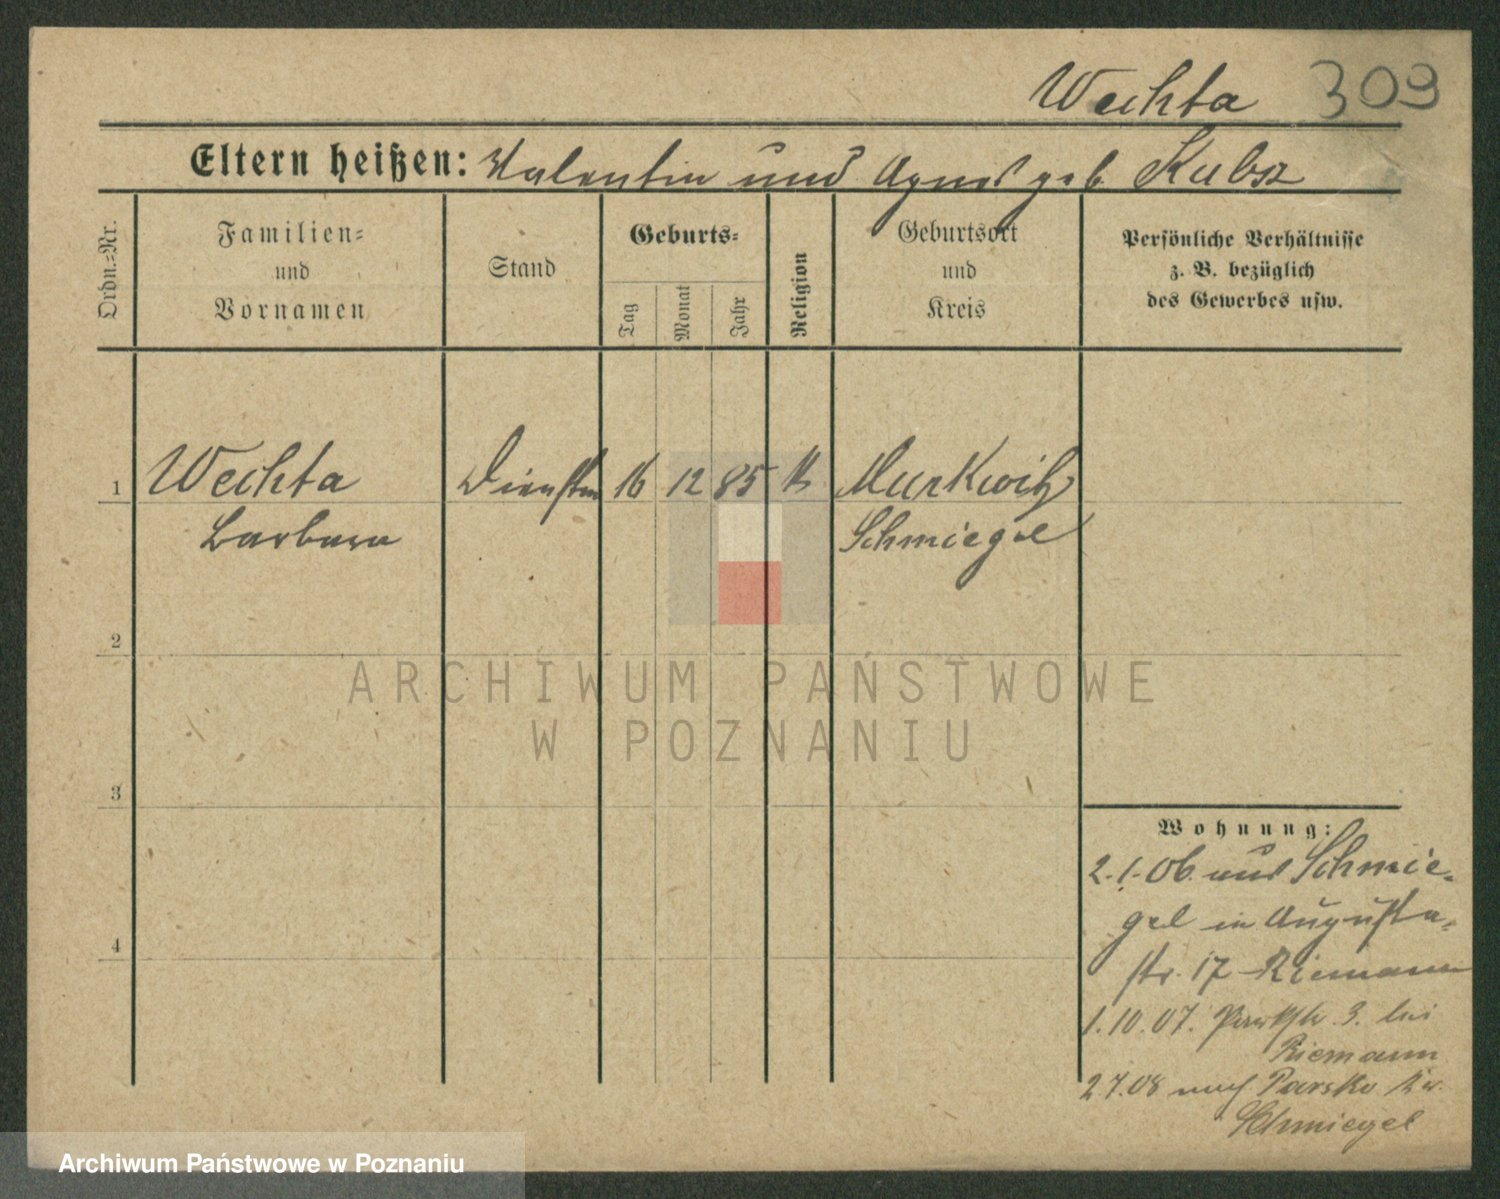 Wechta 309
Eltern heißen: Valentin und Agnes geb. Kubsz
Ordn.-Nr.
Familien-
und
Vornamen
Stand
Geburts-
Tag
Monat
Jahr
Religion
Geburtsort
und
Kreis
Persönliche Verhältnisse
z. B. bezüglich
des Gewerbes usw.
1 Wechta Dienstm 16 12 85 k Murkwitz
Barbara Schmiegel
2
ARCHIWUM PAŃSTWOWE
W POZNANIU
3
Wohnung:
2.1.06. aus Schmie-
gel in Augusta-
4
str. 17 Riemann
1.10.07. Parkstr. 3. bei
Riemann
2.7.08 nach Parsko Kr.
Schmiegel
Archiwum Państwowe w Poznaniu